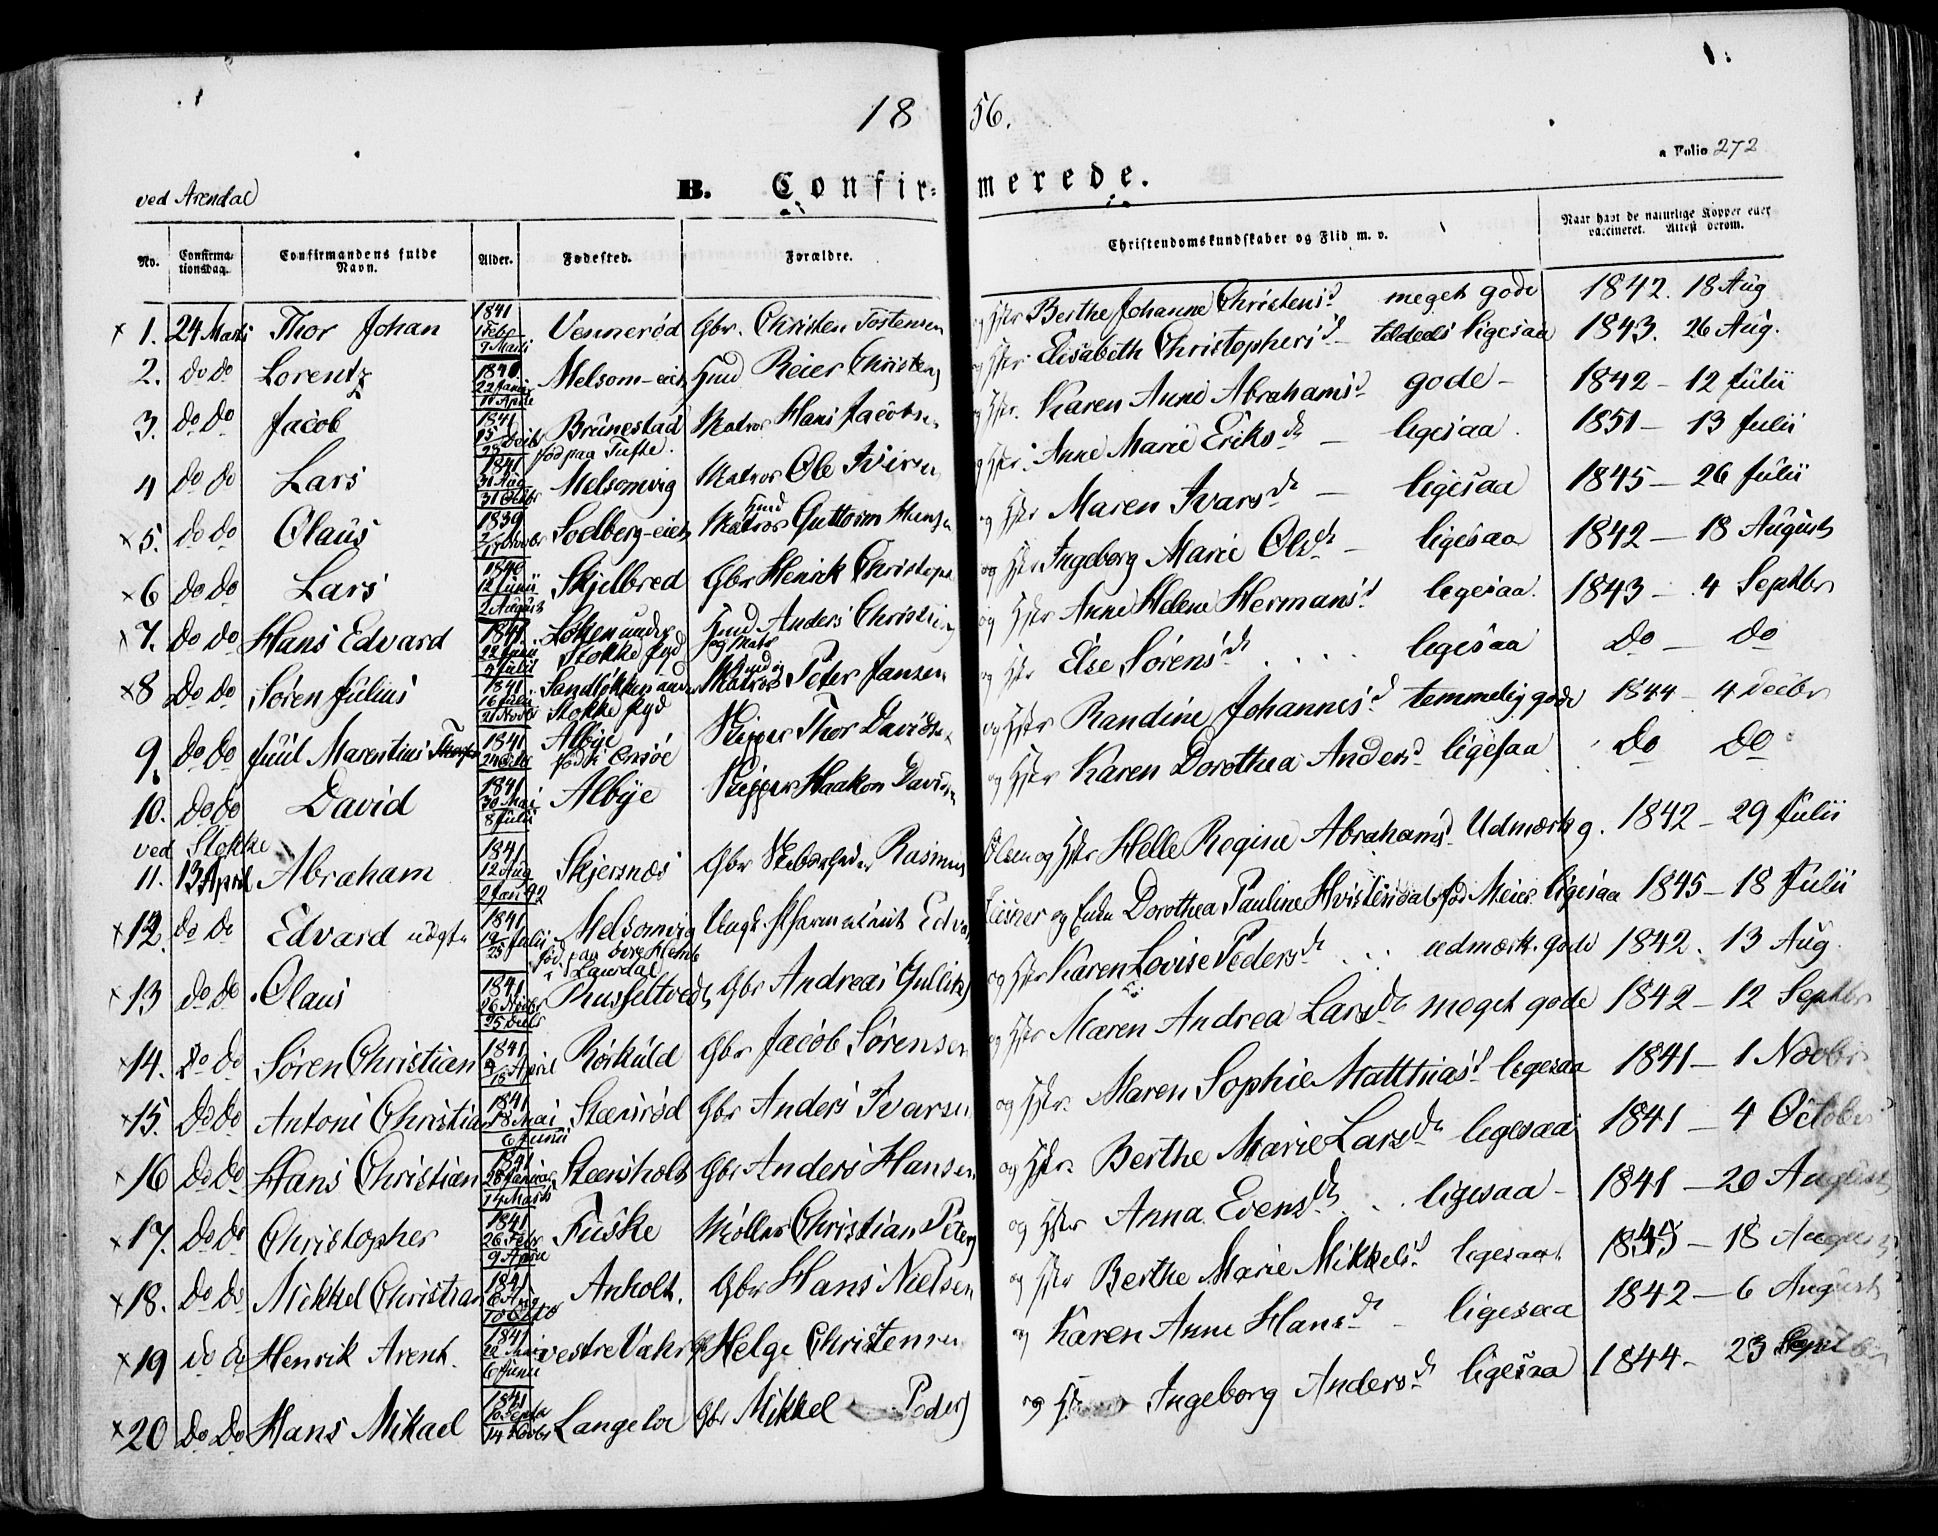 1856.
a Folio 272
ved Arendal
B. Confirmerede.
No. Confirmationsdag. Confirmandens fulde Navn. Alder. Fødested. Forældre. Christendomskundskaber og Flid m. v. Naar havt de naturlige Kopper eller vaccineret. Attest derom.
x 1. 24 Marts Thor Johan 1841 1 Febr 7 Marts Vennerød Gbr. Christen Tostensen og Hstr Berthe Johanne Christensd meget gode 1842. 18 Aug
2. do do Lorentz 1840 22 Janu Melsom-eie Hmd Reier Christens og Hstr Elisabeth Christophersd ligesaa 1843. 26 Aug.
3. do do Jacob 1841 15 28 Decbr Brunestad Matros Hans Jacobsen og Hstr. Karen Anne Abrahamsd gode - 1842 - 12 Julii
fød paa Tufte.
4 do do Lars 1841 31 Aug 31 Octbr Melsomvig Matros Ole Iversen og Hstr. Anne Marie Eriksdr - ligesaa. 1851 - 13 Julii
x 5. do do Olaus 1839 Solberg-eie Hmd Matros Guttorm Hansen og Hstr Maren Ivarsdr - ligesaa 1845 - 26 Julii
x 6 do do Lars 1840 12 Junii 2 August Skjelbred Gbr Henrik Christophe og Hstr Ingeborg Marie Olsdr - ligesaa 1842 - 18 August
x 7. do do Hans Edvard 1841. 22 Junii Julii Løken under Stokke Hmd og Matr Anders Christens og Hstr Anne Helene Hermansd ligesaa. 1843 - 4 Septbr
x 8 do do Søren Julius 1841 16 Julii 21 Novbr Sandløkken under Stokke Hmd og Matros Peter Jansen og Hstr Else Sørensdr ligesaa do - do
9. do do Juul Marentius 1841 Albye Skipper Thor Davidsen og Hstr Randine Johannesd temmelig gode 1844 - 4 Decbr
10. do do David 1841 30 Mai 8 Julii Albye Skipper Haakon Davidsen og Hstr Karen Dorothea Andersd ligesaa do do
ved Stokke
11. 13 April Abraham 1841 12 Aug 2 Jan 42 Skjersnæs Gbr Rasmus Olsen og Hstr Helle Regine Abrahamsd Udmærk g. 1842 - 29 Julii
x 12. do do Edvard uægte 1841 19 25 Julii Melsomvig Edv og Dorothea Pauline Hvistendal fød Meier ligesaa 1845 - 18 Julii
x 13 do do Olaus 1841 26 Novbr 25 Decbr Russeltvedt Gbr Andreas Gulliks og Hstr Karen Lovise Pedersdr udmærk. gode 1842. 13 Aug.
x 14. do do Søren Christian 1841 April Rørkuld Gbr Jacob Sørensen og Hstr Maren Andrea Larsdr meget gode 1842 - 12 Septbr
x 15. do do Antoni Christian 1841 18 Mai 6 Junii Steensrød Gbr Anders Ivarsen og Hstr. Maren Sophie Matthiasd ligesaa 1841 - 1 Novbr
x 16 do do Hans Christian 1841 28 Januar 14 Marts Steensholt Gbr Anders Hansen og Hstr. Berthe Marie Larsdr ligesaa 1841 - 4 October
x 17. do do Christopher 1841 26 Febr 9 April Fuske Møller Christian Peters og Hstr Anna Evensdr ligesaa - 1841 - 20 August
x 18. do do Mikkel Christian 1841 6 Aug 10 Octbr Anholt. Gbr Hans Nielsen og Hstr Berthe Marie Mikkelsd ligesaa 1845 - 18 August
x 19 do do Henrik Arent. 1841 6 Junii vestre Vakr Gbr Helge Christensen og Karen Anne Hansdr - ligesaa 1842 - 6 August
x 20 do do Hans Mikael 1841 14 Novbr Langeloe Gbr Mikkel Peders og Ingeborg Andersdr ligesaa 1844 - 23 September